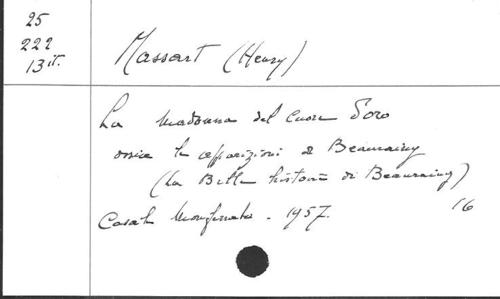 25
222
13 it.
Massart (Henry)
La Madonna del cuore d'oro
ossia le apparizioni di Beauraing
(La Belle histoire di Beauraing)
Casale Monferrato. 1957.
16